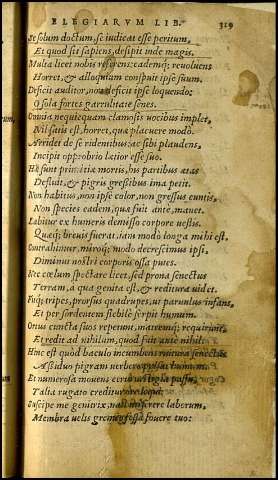 ELEGIARVM LIB. 319
Se solum doctum, se iudicat esse peritum,
Et quod sit sapiens, desipit inde magis.
Multa licet nobis referens: eademq; reuoluens
Horret, & alloquium conspuit ipse suum.
Deficit auditor, non deficit ipse loquendo:
O sola fortes garrulitate senes.
Omnia nequicquam clamosis vocibus implet,
Nil satis est, horret, quæ placuere modò.
Arridet de se ridentibus: ac sibi plaudens,
Incipit opprobrio lætior esse suo.
Hæ sunt primitiæ mortis, his partibus ætas
Defluit, & pigris gressibus ima petit.
Non habitus, non ipse color, non gressus euntis,
Non species eadem, quæ fuit ante, manet.
Labitur ex humeris demisso corpore vestis.
Quæq; breuis fuerat, iam modò longa mihi est,
Contrahimur, miroq; modo decrescimus ipsi,
Diminui nostri corporis ossa putes.
Nec cœlum spectare licet, sed prona senectus
Terram, à qua genita est, & reditura videt.
Fitq; tripes, prorsus quadrupes, vt paruulus infans,
Et per sordentem flebilè serpit humum.
Ortus cuncta suos repetunt, matremq; requirunt,
Et redit ad nihilum, quod fuit ante nihil.
Hinc est quòd baculo incumbens ruitura senectus
Assiduo pigram verbere pulsat humum.
Et numerosa mouens certo vestigia passu,
Talia rugato creditur ore loqui:
Suscipe me genitrix, nati miserere laborum,
Membra velis gremio fessa fouere tuo: